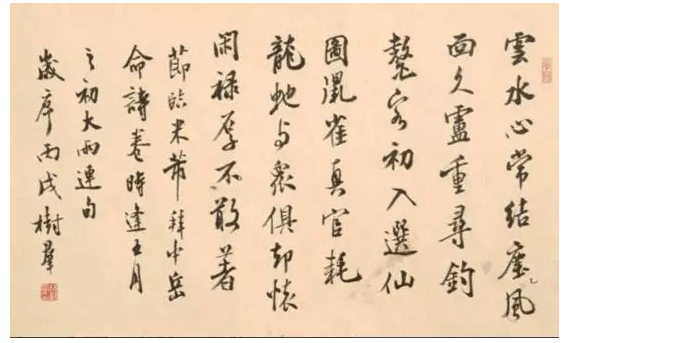 雲水心常結塵風
面久盧重尋釣
鰲客初入選仙
圖鼠雀真官耗
龍虵与眾俱却懷
閑祿厚不敢著
節臨米芾拜中岳
命詩卷時逢五月
之初大雨連旬
歲序丙戌樹羣